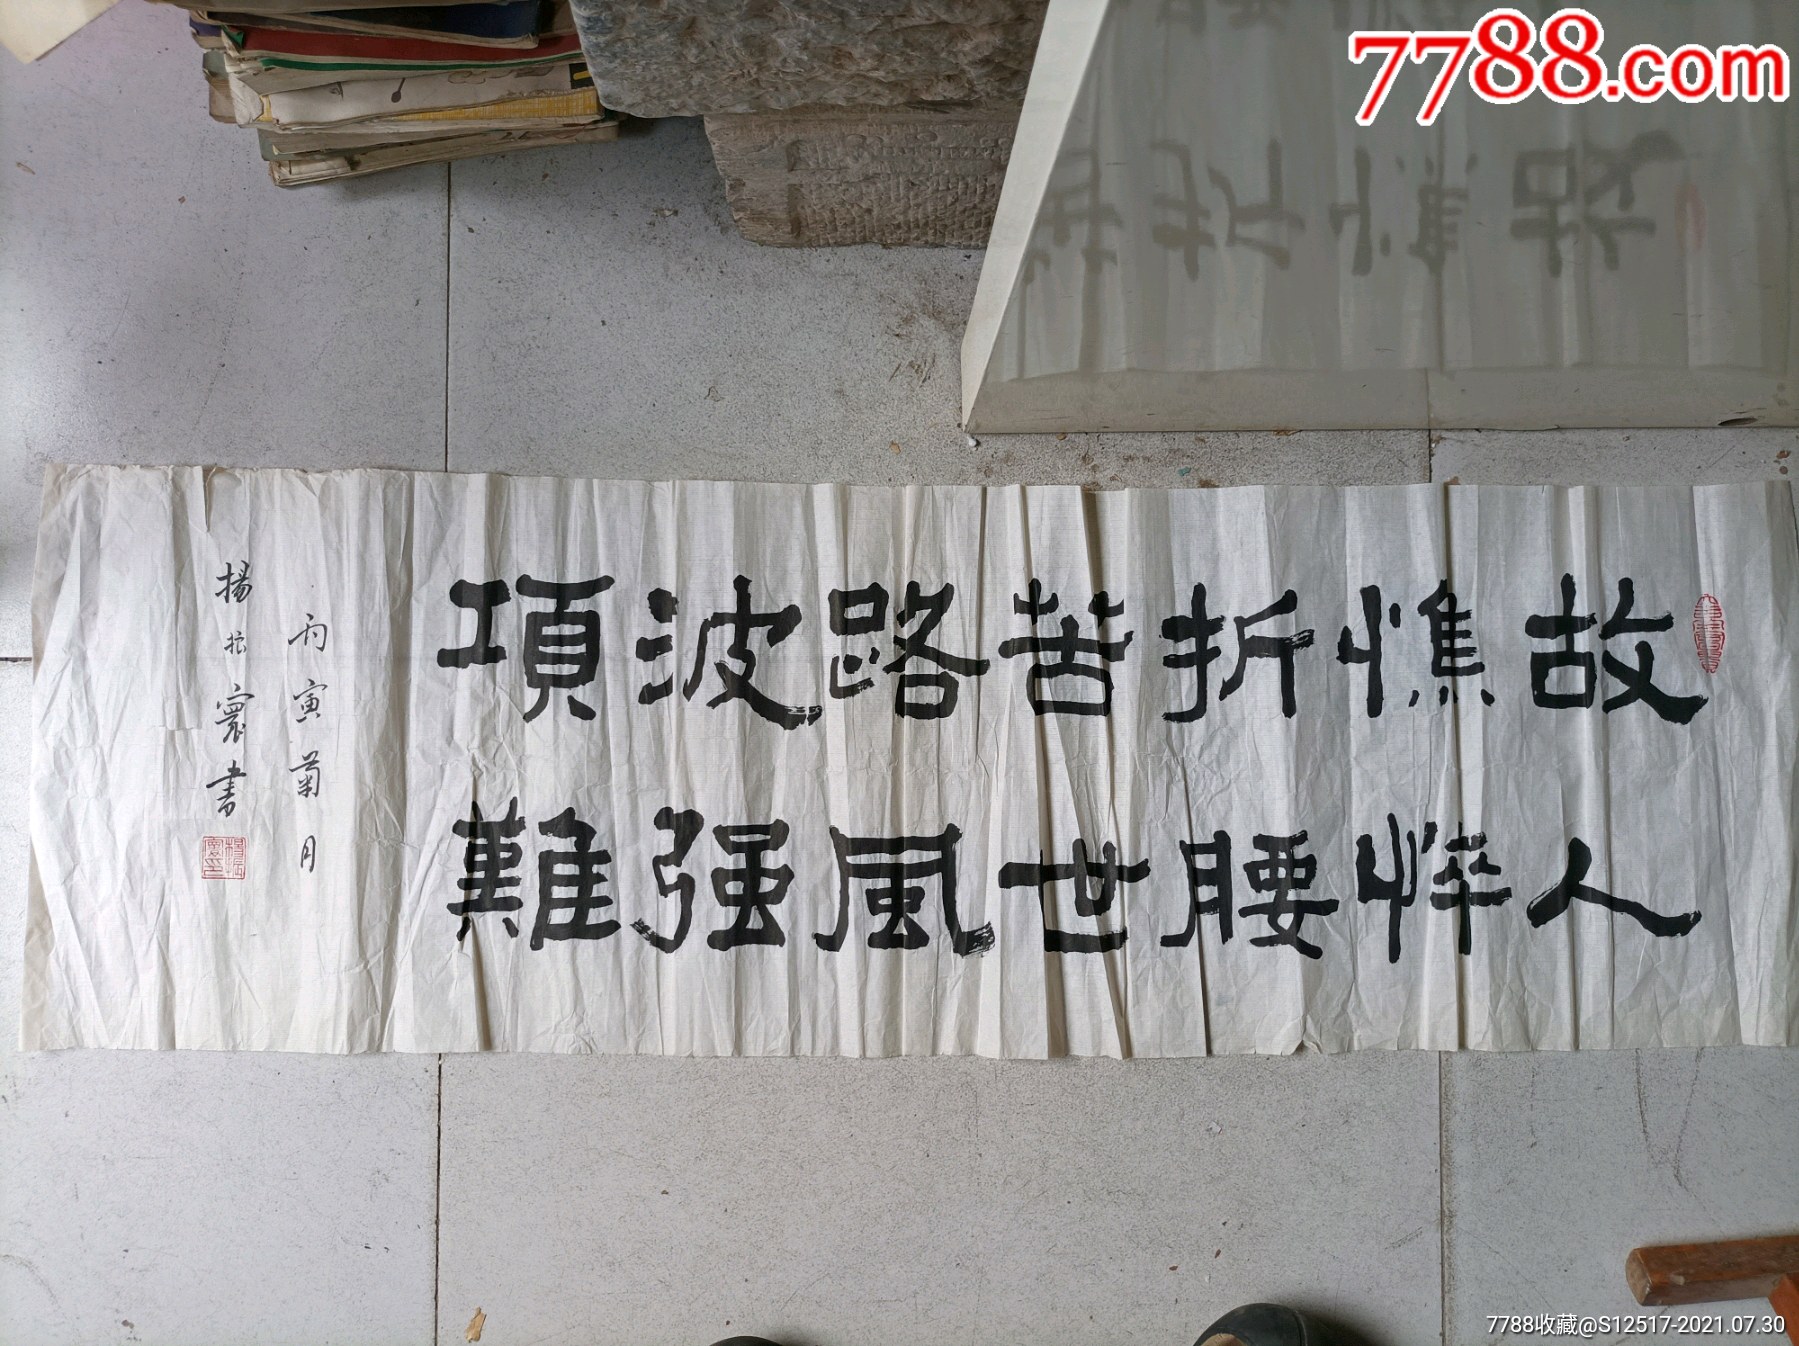 7788.com
故人
憔悴
折腰
苦世
路風
波强
項難
丙寅菊月
楊振寰書
7788收藏@S12517-2021.07.30